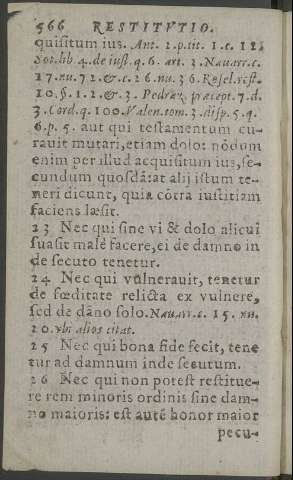 566 RESTITVTIO.
quisitum ius. Ant. 2. p. tit. 1. c. 12.
Sot. lib. 4. de iust. q. 6. art. 3. Nauarr. c.
17. nu. 72. & c. 26. nu. 36. Rosel. rest.
10. §. 1. 2. & 3. Pedraz. præcept. 7. d.
3. Cord. q. 100. Valen. tom. 3. disp. 5. q.
6. p. 5. aut qui testamentum cu-
rauit mutari, etiam dolo: nōdum
enim per illud acquisitum ius, se-
cundum quosdā: at alij istum te-
neri dicunt, quia cōtra iustitiam
faciens læsit.
23 Nec qui sine vi & dolo alicui
suasit malé facere, ei de damno in
de secuto tenetur.
24 Nec qui vulnerauit, tenetur
de fœditate relicta ex vulnere,
sed de dāno solo. Nauarr. c. 15. nu.
20. vbi alios citat.
25 Nec qui bona fide fecit, tene
tur ad damnum inde secutum.
26 Nec qui non potest restitue-
re rem minoris ordinis sine dam-
no maioris: est autē honor maior
pecu-